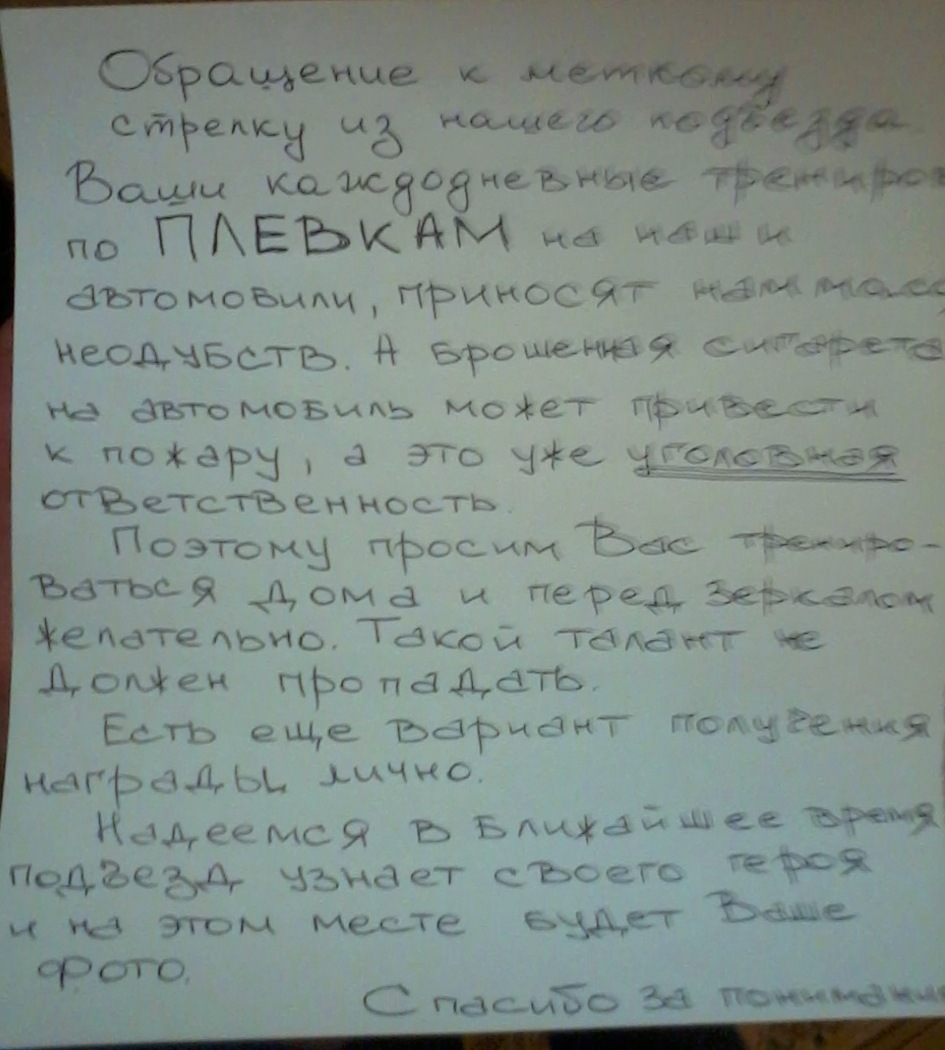 Обращение к меткому
стрелку из нашего подъезда
Ваши каждодневные трениров
по ПЛЕВКАМ на наши
автомобили, приносят нам масс
неодубств. А брошенная сигарета
на автомобиль может привести
к пожару, а это уже уголовная
ответственность.
Поэтому просим Вас трениро-
ваться дома и перед зеркалом
желательно. Такой талант не
должен пропадать.
Есть еще вариант получения
награды, лично.
Надеемся в ближайшее время
подъезд узнает своего героя
и на этом месте будет Ваше
фото.
Спасибо за понимание